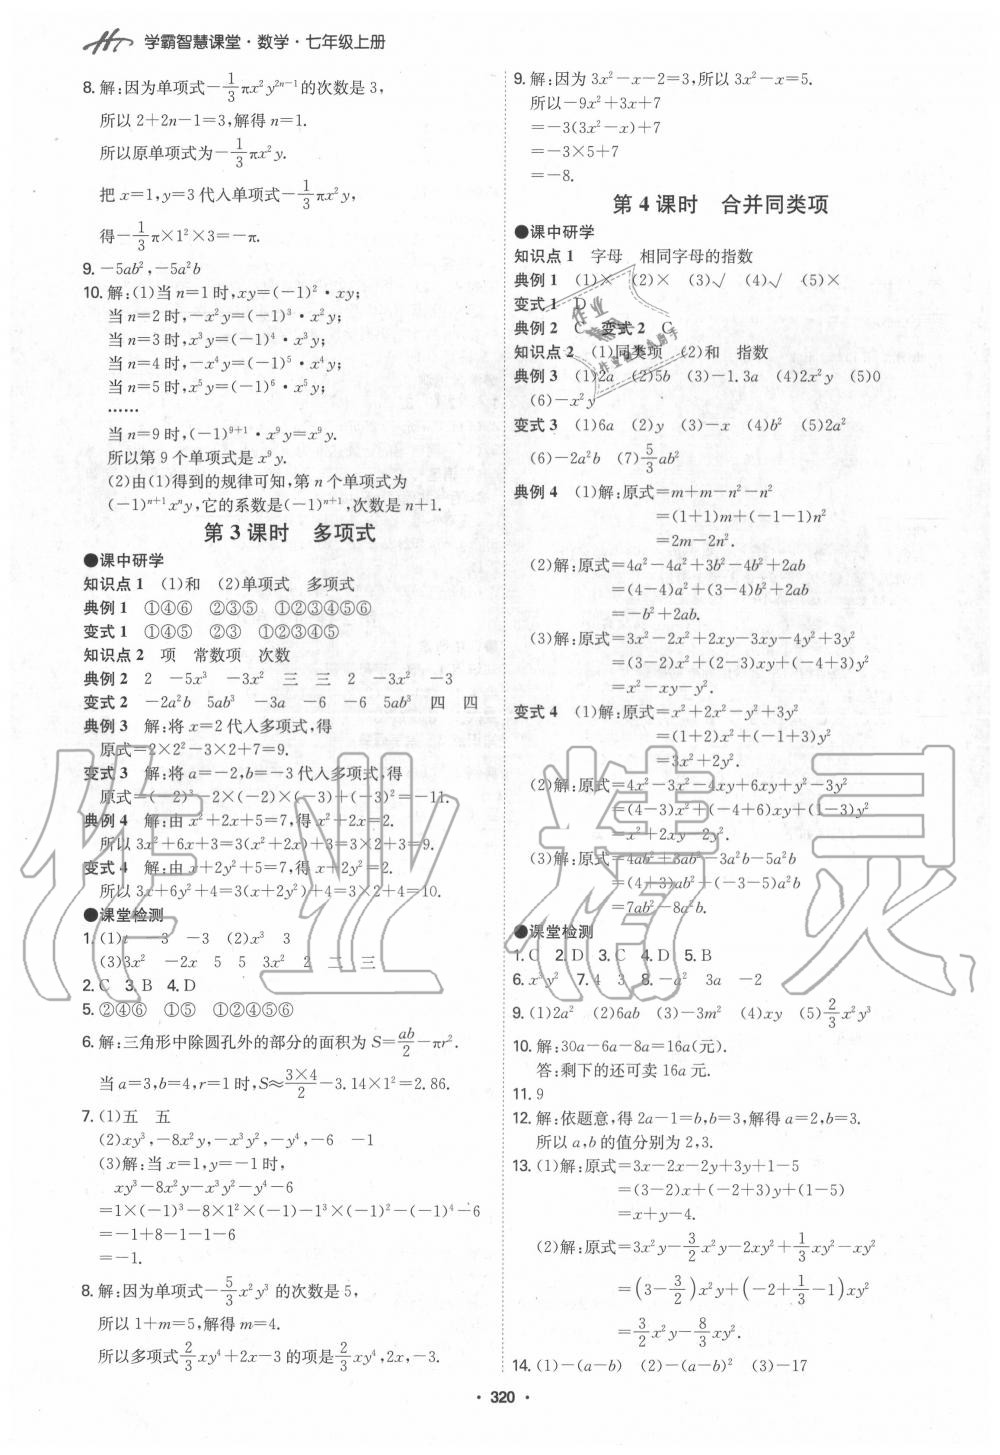 学霸智慧课堂·数学·七年级上册
8. 解:因为单项式-1/3πx²y²ⁿ⁻¹的次数是3,
所以2+2n-1=3,解得n=1.
所以原单项式为-1/3πx²y.
把x=1,y=3代入单项式-1/3πx²y,
得-1/3π×1²×3=-π.
9. -5ab²,-5a²b
10. 解:(1)当n=1时,xy=(-1)²·xy;
当n=2时,-x²y=(-1)³·x²y;
当n=3时,x³y=(-1)⁴·x³y;
当n=4时,-x⁴y=(-1)⁵·x⁴y;
当n=5时,x⁵y=(-1)⁶·x⁵y;
……
当n=9时,(-1)⁹⁺¹·x⁹y=x⁹y.
所以第9个单项式是x⁹y.
(2)由(1)得到的规律可知,第n个单项式为
(-1)ⁿ⁺¹xⁿy,它的系数是(-1)ⁿ⁺¹,次数是n+1.
第3课时 多项式
●课中研学
知识点1 (1)和 (2)单项式 多项式
典例1 ①④⑥ ②③⑤ ①②③④⑤⑥
变式1 ①④⑤ ②③ ①②③④⑤
知识点2 项 常数项 次数
典例2 2 -5x³ -3x² 三 三 2 -3x² -3
变式2 -2a²b 5ab³ -3a -6 -6 5ab³ 四 四
典例3 解:将x=2代入多项式,得
原式=2×2²-3×2+7=9.
变式3 解:将a=-2,b=-3代入多项式,得
原式=(-2)³-2×(-2)×(-3)+(-3)²=-11.
典例4 解:由x²+2x+5=7,得x²+2x=2.
所以3x²+6x+3=3(x²+2x)+3=3×2+3=9.
变式4 解:由x+2y²+5=7,得x+2y²=2.
所以3x+6y²+4=3(x+2y²)+4=3×2+4=10.
●课堂检测
1. (1)t -3 -3 (2)x³ 3
(3)3x² -2x 5 5 3x² 2 二 三
2. C 3. B 4. D
5. ②④⑥ ①⑤ ①②④⑤⑥
6. 解:三角形中除圆孔外的部分的面积为S=ab/2-πr².
当a=3,b=4,r=1时,S≈3×4/2-3.14×1²=2.86.
7. (1)五 五
(2)xy³,-8x²y,-x³y²,-y⁴,-6 -1
(3)解:当x=1,y=-1时,
xy³-8x²y-x³y²-y⁴-6
=1×(-1)³-8×1²×(-1)-1³×(-1)²-(-1)⁴-6
=-1+8-1-1-6
=-1.
8. 解:因为单项式-5/3x²y³的次数是5,
所以1+m=5,解得m=4.
所以多项式2/3xy⁴+2x-3的项是2/3xy⁴,2x,-3.
9. 解:因为3x²-x-2=3,所以3x²-x=5.
所以-9x²+3x+7
=-3(3x²-x)+7
=-3×5+7
=-8.
第4课时 合并同类项
●课中研学
知识点1 字母 相同字母的指数
典例1 (1)× (2)× (3)√ (4)√ (5)×
变式1 D
典例2 C 变式2 C
知识点2 (1)同类项 (2)和 指数
典例3 (1)2a (2)5b (3)-1.3a (4)2x²y (5)0
(6)-x²y
变式3 (1)6a (2)y (3)-x (4)b² (5)2a²
(6)-2a²b (7)5/3ab²
典例4 (1)解:原式=m+m-n²-n²
=(1+1)m+(-1-1)n²
=2m-2n².
(2)解:原式=4a²-4a²+3b²-4b²+2ab
=(4-4)a²+(3-4)b²+2ab
=-b²+2ab.
(3)解:原式=3x²-2x²+2xy-3xy-4y²+3y²
=(3-2)x²+(2-3)xy+(-4+3)y²
=x²-xy-y².
变式4 (1)解:原式=x²+2x²-y²+3y²
=(1+2)x²+(-1+3)y²
=3x²+2y².
(2)解:原式=4x²-3x²-4xy+6xy+y²-3y²
=(4-3)x²+(-4+6)xy+(1-3)y²
=x²+2xy-2y².
(3)解:原式=4ab²+3ab²-3a²b-5a²b
=(4+3)ab²+(-3-5)a²b
=7ab²-8a²b.
●课堂检测
1. C 2. D 3. C 4. D 5. B
6. x³y² 7. 4 3 8. -a² 3a -2
9. (1)2a² (2)6ab (3)-3m² (4)xy (5)2/3x²y³
10. 解:30a-6a-8a=16a(元).
答:剩下的还可卖16a元.
11. 9
12. 解:依题意,得2a-1=b,b=3,解得a=2,b=3.
所以a,b的值分别为2,3.
13. (1)解:原式=3x-2x-2y+3y+1-5
=(3-2)x+(-2+3)y+(1-5)
=x+y-4.
(2)解:原式=3x²y-3/2x²y-2xy²+1/3xy²-xy²
=(3-3/2)x²y+(-2+1/3-1)xy²
=3/2x²y-8/3xy².
14. (1)-(a-b) (2)-(a-b)² (3)-17
·320·
作业精灵